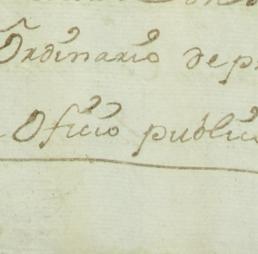 Ordinario de p
Oficio públic